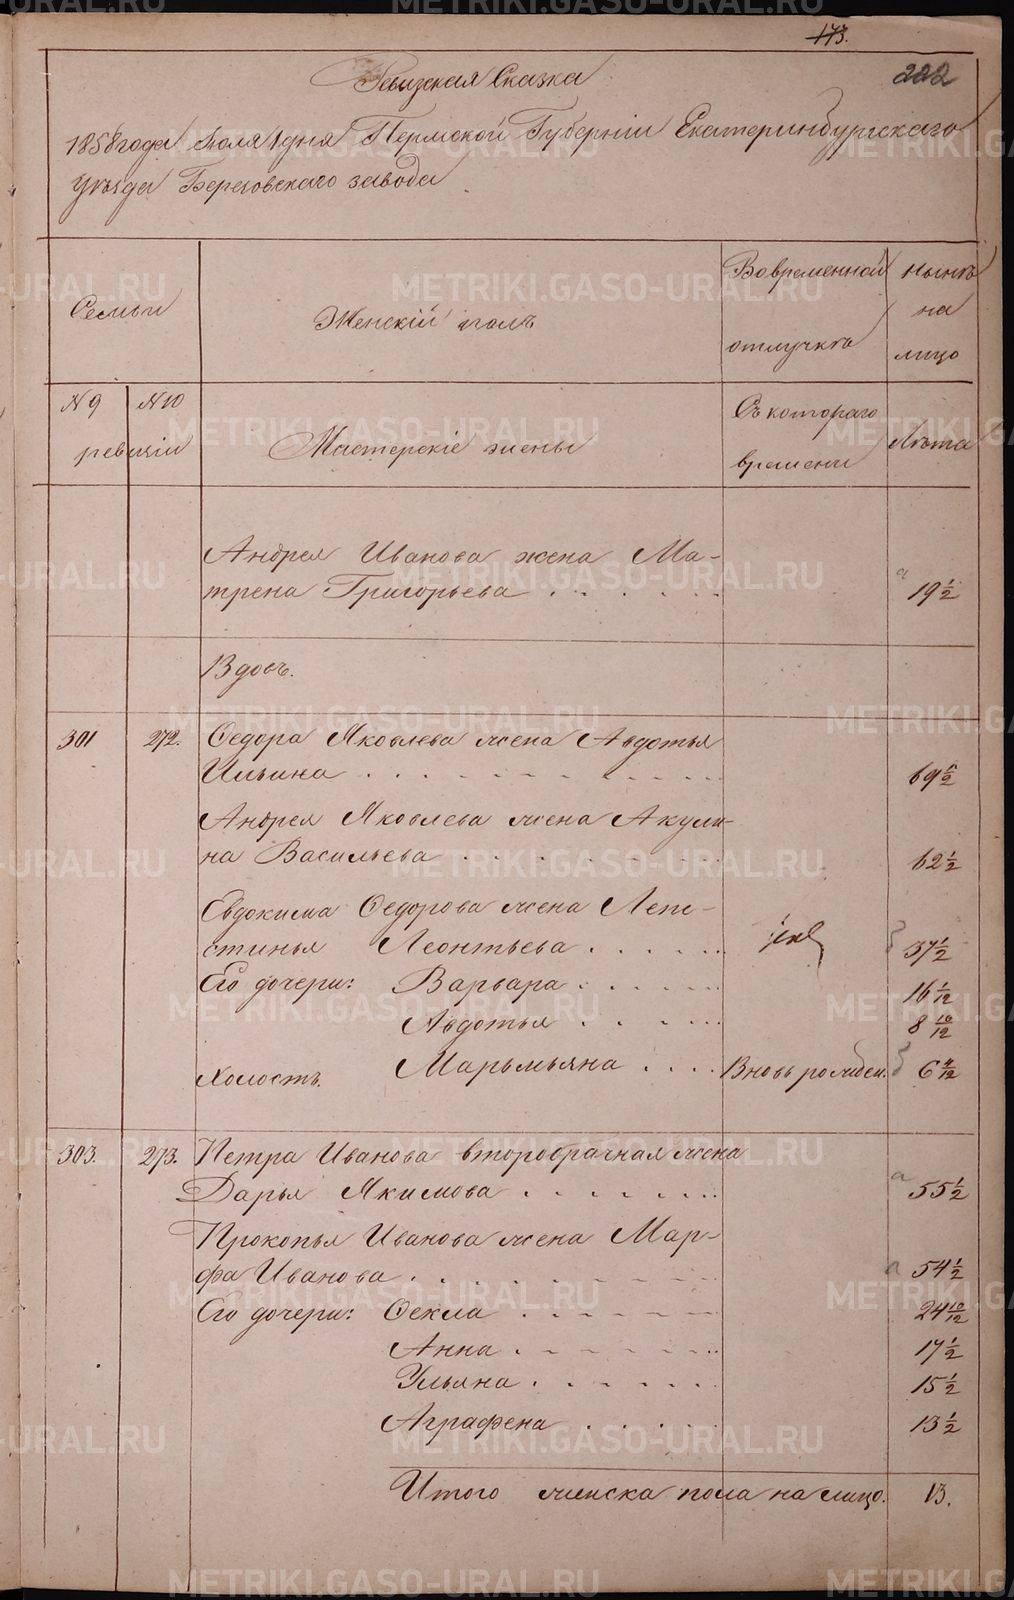 173.
222
Ревизская Сказка
1858 года Июля 1 дня Пермской Губерніи Екатеринбургскаго
уѣзда Березовскаго завода
Семьи
Женскій полъ
Во временной отлучкѣ
Нынѣ на лицо
N 9 N 10
ревизіи
Мастерскіе жены
Съ котораго времени
Лѣта
Андрея Иванова жена Ма-
трена Григорьева . . . . . . 19 1/2
Вдовъ.
301 272. Федора Яковлева жена Авдотья
Ильина . . . . . . . . . . . .
Андрея Яковлева жена Акули-
на Васильева . . . . . . . . 62 1/2
Евдокима Федорова жена
стинья Леонтьева . . . . . 37 1/2
Его дочери: Варвара . . . . . 16 1/12
Авдотья . . . . . 8 10/12
Холостъ. Марьмьяна . . . . Вновь рожден.
303. 273. Петра Иванова второбрачная жена
Дарья Якимова . . . . . . . 55 1/2
Прокопья Иванова жена Мар-
фа Иванова . . . . . . . . . 54 1/2
Его дочери: Фекла . . . . . . 24 10/12
Анна . . . . . . 17 1/2
Ульяна . . . . . . 15 1/2
Аграфена . . . . . 13 1/2
Итого женска пола на лицо. 13.
METRIKI.GASO-URAL.RU